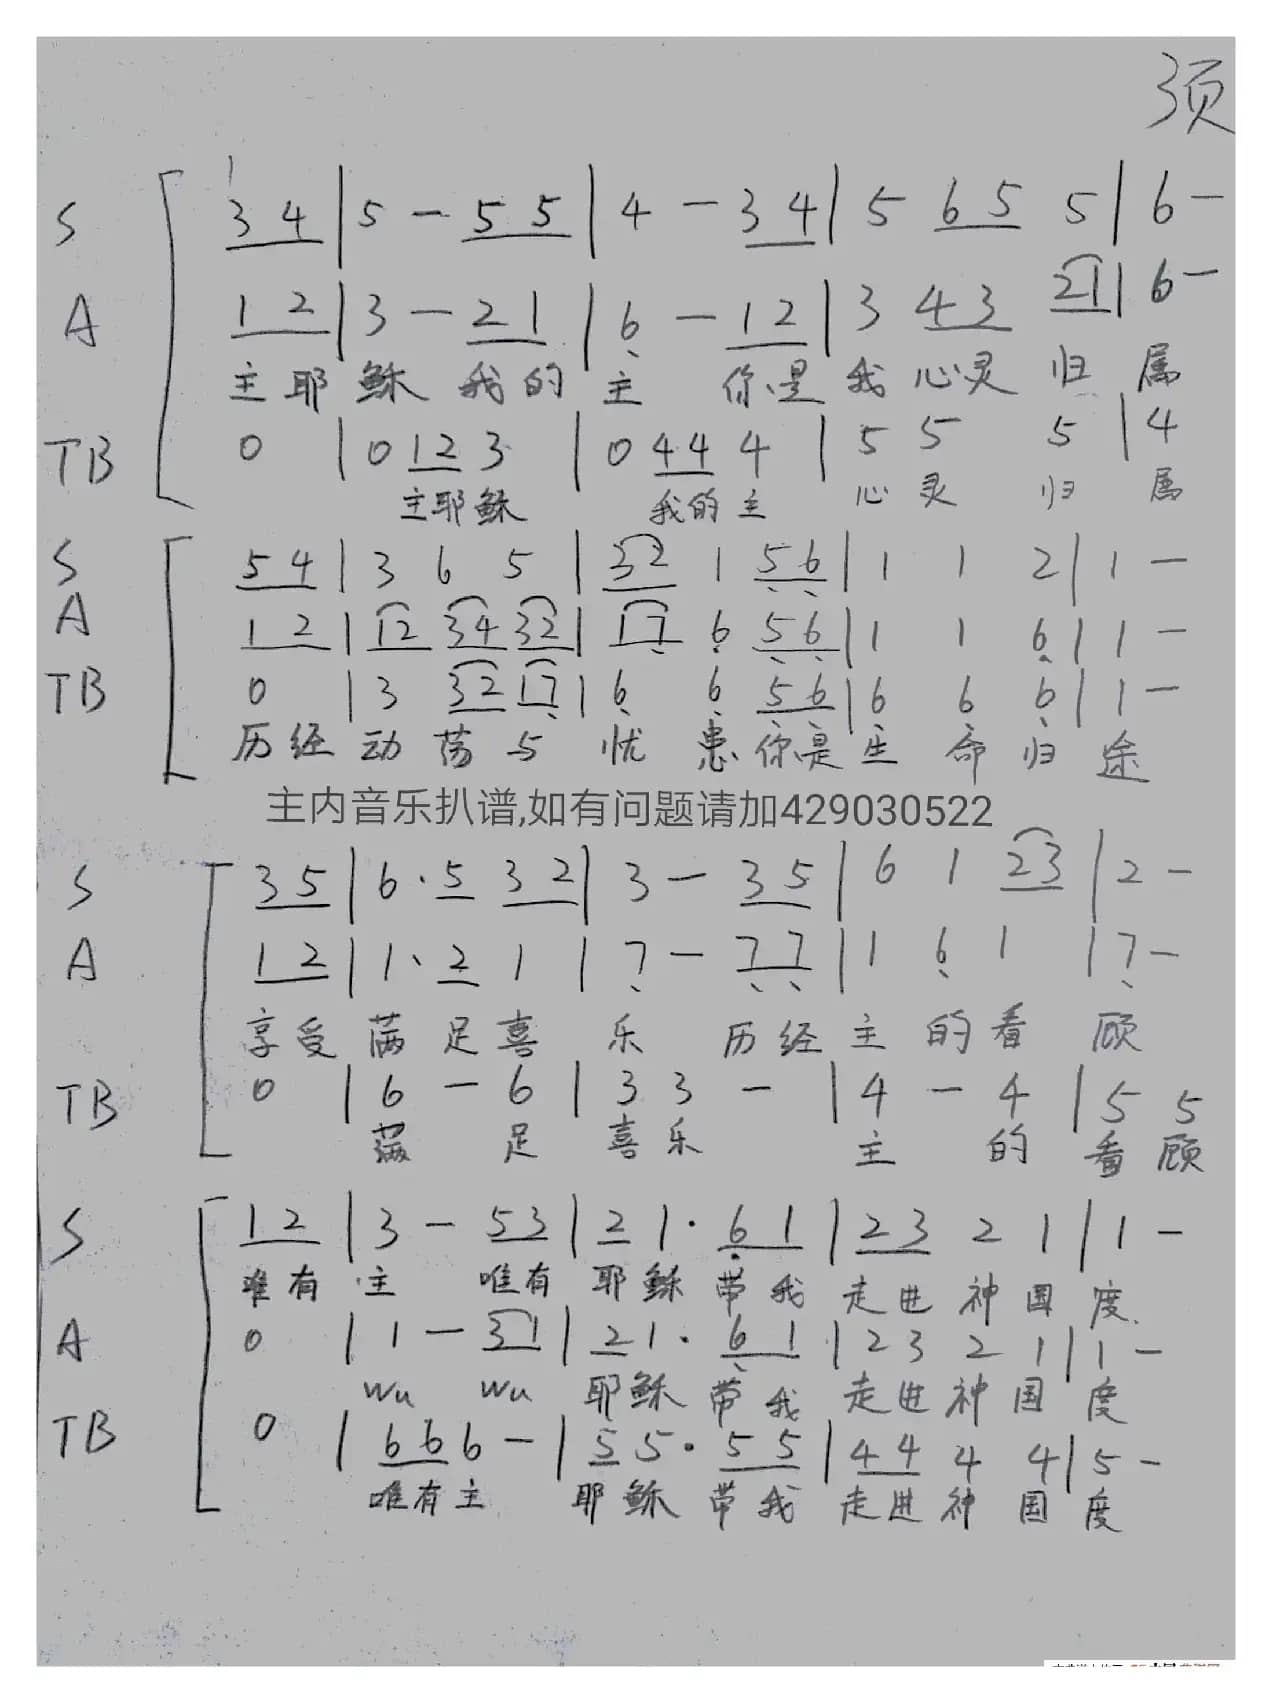 3页
S 3 4 | 5 - 5 5 | 4 - 3 4 | 5 6 5 5 | 6 -
A 1 2 | 3 - 2 1 | 6 - 1 2 | 3 4 3 2 1 | 6 -
主耶稣我的主 你是我心灵归属
TB 0 | 0 1 2 3 | 0 4 4 4 | 5 5 5 | 4
主耶稣 我的主 心灵归属
S 5 4 | 3 6 5 | 3 2 1 5 6 | 1 1 2 | 1 -
A 1 2 | 1 2 3 4 3 2 | 1 7 6 5 6 | 1 1 6 | 1 -
TB 0 | 3 3 2 1 7 | 6 6 5 6 | 6 6 6 | 1 -
历经动荡与忧患你是生命归途
主内音乐扒谱,如有问题请加429030522
S 3 5 | 6 · 5 3 2 | 3 - 3 5 | 6 1 2 3 | 2 -
A 1 2 | 1 · 2 1 | 7 - 7 7 | 1 6 1 | 7 -
享受满足喜乐 历经主的看顾
TB 0 | 6 - 6 | 3 3 - | 4 - 4 | 5 5
满足喜乐 主的看顾
S 1 2 | 3 - 5 3 | 2 1 · 6 1 | 2 3 2 1 | 1 -
唯有主 唯有耶稣带我走进神国度
A 0 | 1 - 3 1 | 2 1 · 6 1 | 2 3 2 1 | 1 -
wu wu 耶稣带我走进神国度
TB 0 | 6 6 6 - | 5 5 · 5 5 | 4 4 4 4 | 5 -
唯有主 耶稣带我走进神国度